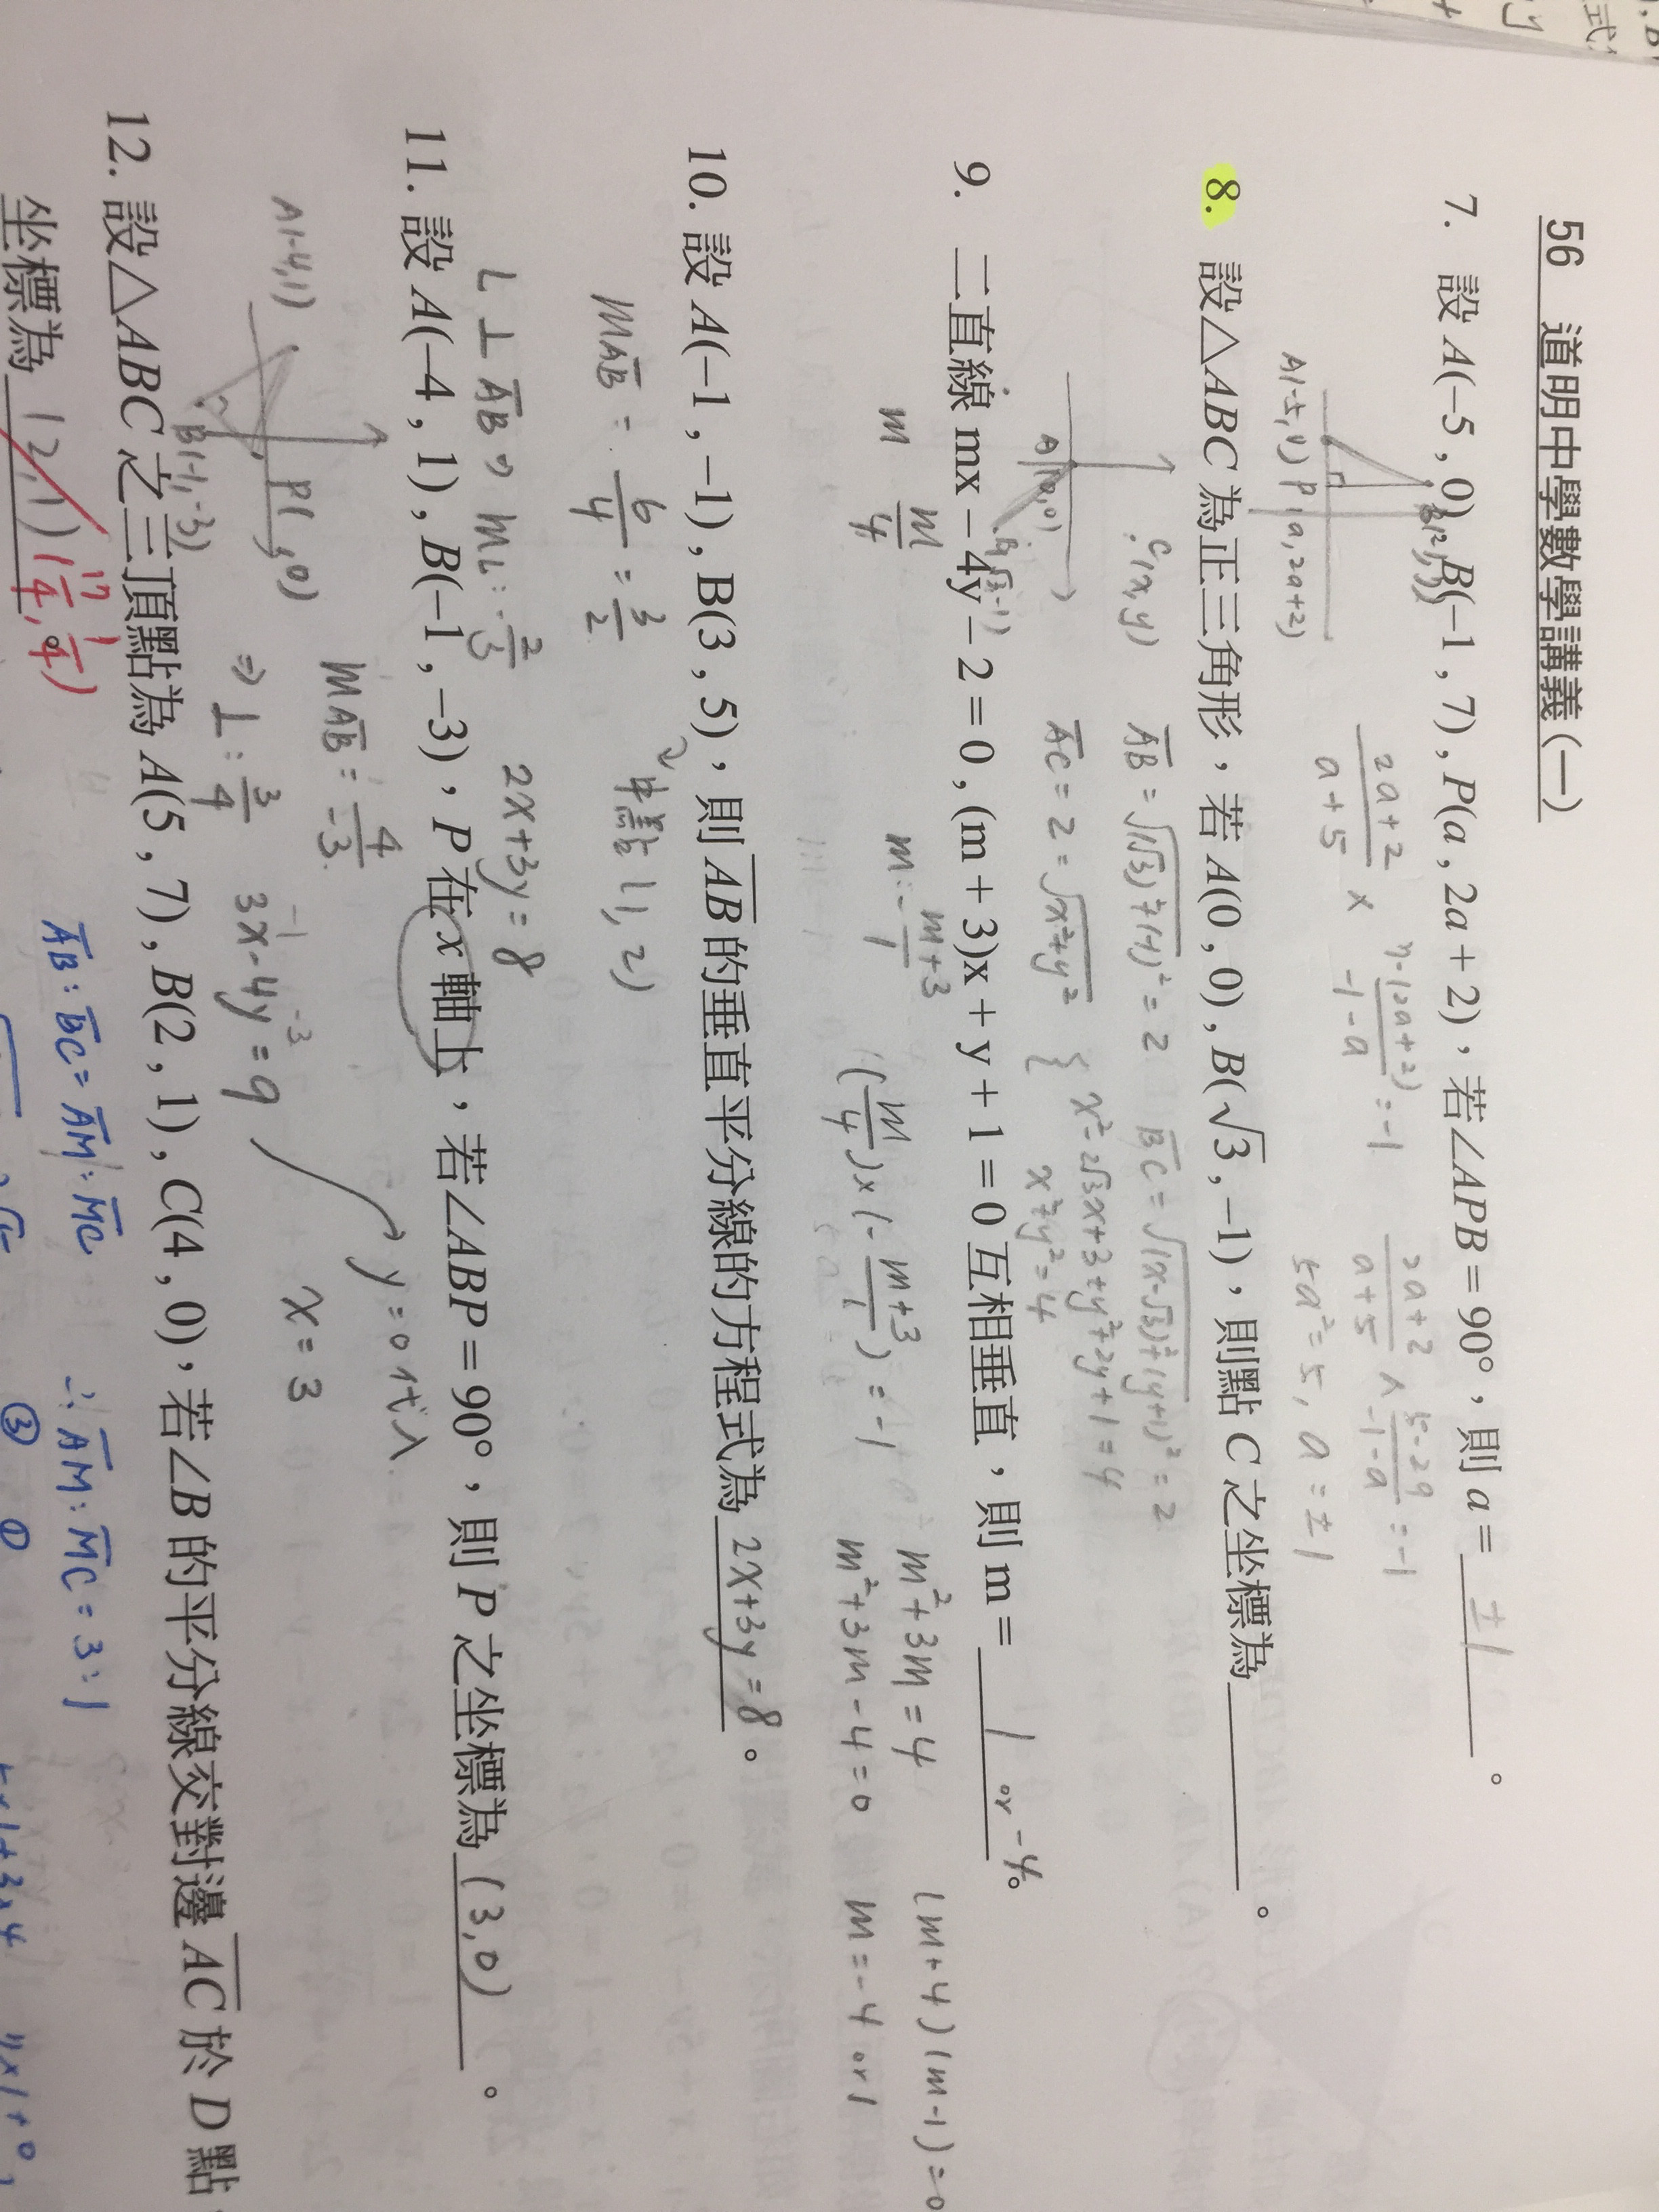 56 道明中學數學講義(一)
7. 設A(−5 , 0) , B(−1 , 7) , P(a , 2a + 2)，若∠APB = 90°，則 a = ±1 。
A(-5,0) P(a,2a+2)
2a+2/a+5 × 7-(2a+2)/-1-a = -1
2a+2/a+5 × 5-2a/-1-a = -1
5a² = 5, a = ±1
8. 設△ABC 為正三角形，若 A(0 , 0) , B(√3 , −1)，則點 C 之坐標為 。
C(x,y)
A(0,0)
B(√3,-1)
AB = √(√3)²+(-1)² = 2
BC = √(x-√3)²+(y+1)² = 2
AC = 2 = √x²+y²
{ x²-2√3x+3+y²+2y+1=4
x²+y²=4
9. 二直線 mx − 4y − 2 = 0 , (m + 3)x + y + 1 = 0 互相垂直，則 m = 1 or -4。
m m/4
m: - m+3/1
(m/4)×(- m+3/1) = -1
m²+3m=4
m²+3m-4=0
(m+4)(m-1)=0
m=-4 or 1
10. 設 A(−1 , −1) , B(3 , 5)，則 AB 的垂直平分線的方程式為 2x+3y=8 。
mAB = 6/4 = 3/2
中點(1,2)
L⊥AB, mL: -2/3
2x+3y=8
11. 設 A(−4 , 1) , B(−1 , −3)，P 在 x 軸上，若∠ABP = 90°，則 P 之坐標為 (3,0) 。
A(-4,1)
B(-1,-3)
P( ,0)
mAB = 4/-3
⇒ ⊥: 3/4
-1 -3
3x-4y=9
y=0代入
x=3
12. 設△ABC 之三頂點為 A(5 , 7) , B(2 , 1) , C(4 , 0)，若∠B 的平分線交對邊 AC 於 D 點
坐標為 (2,1) (17/4, 7/4)
AB:BC=AM:MC
∴AM:MC=3:1
③ ①